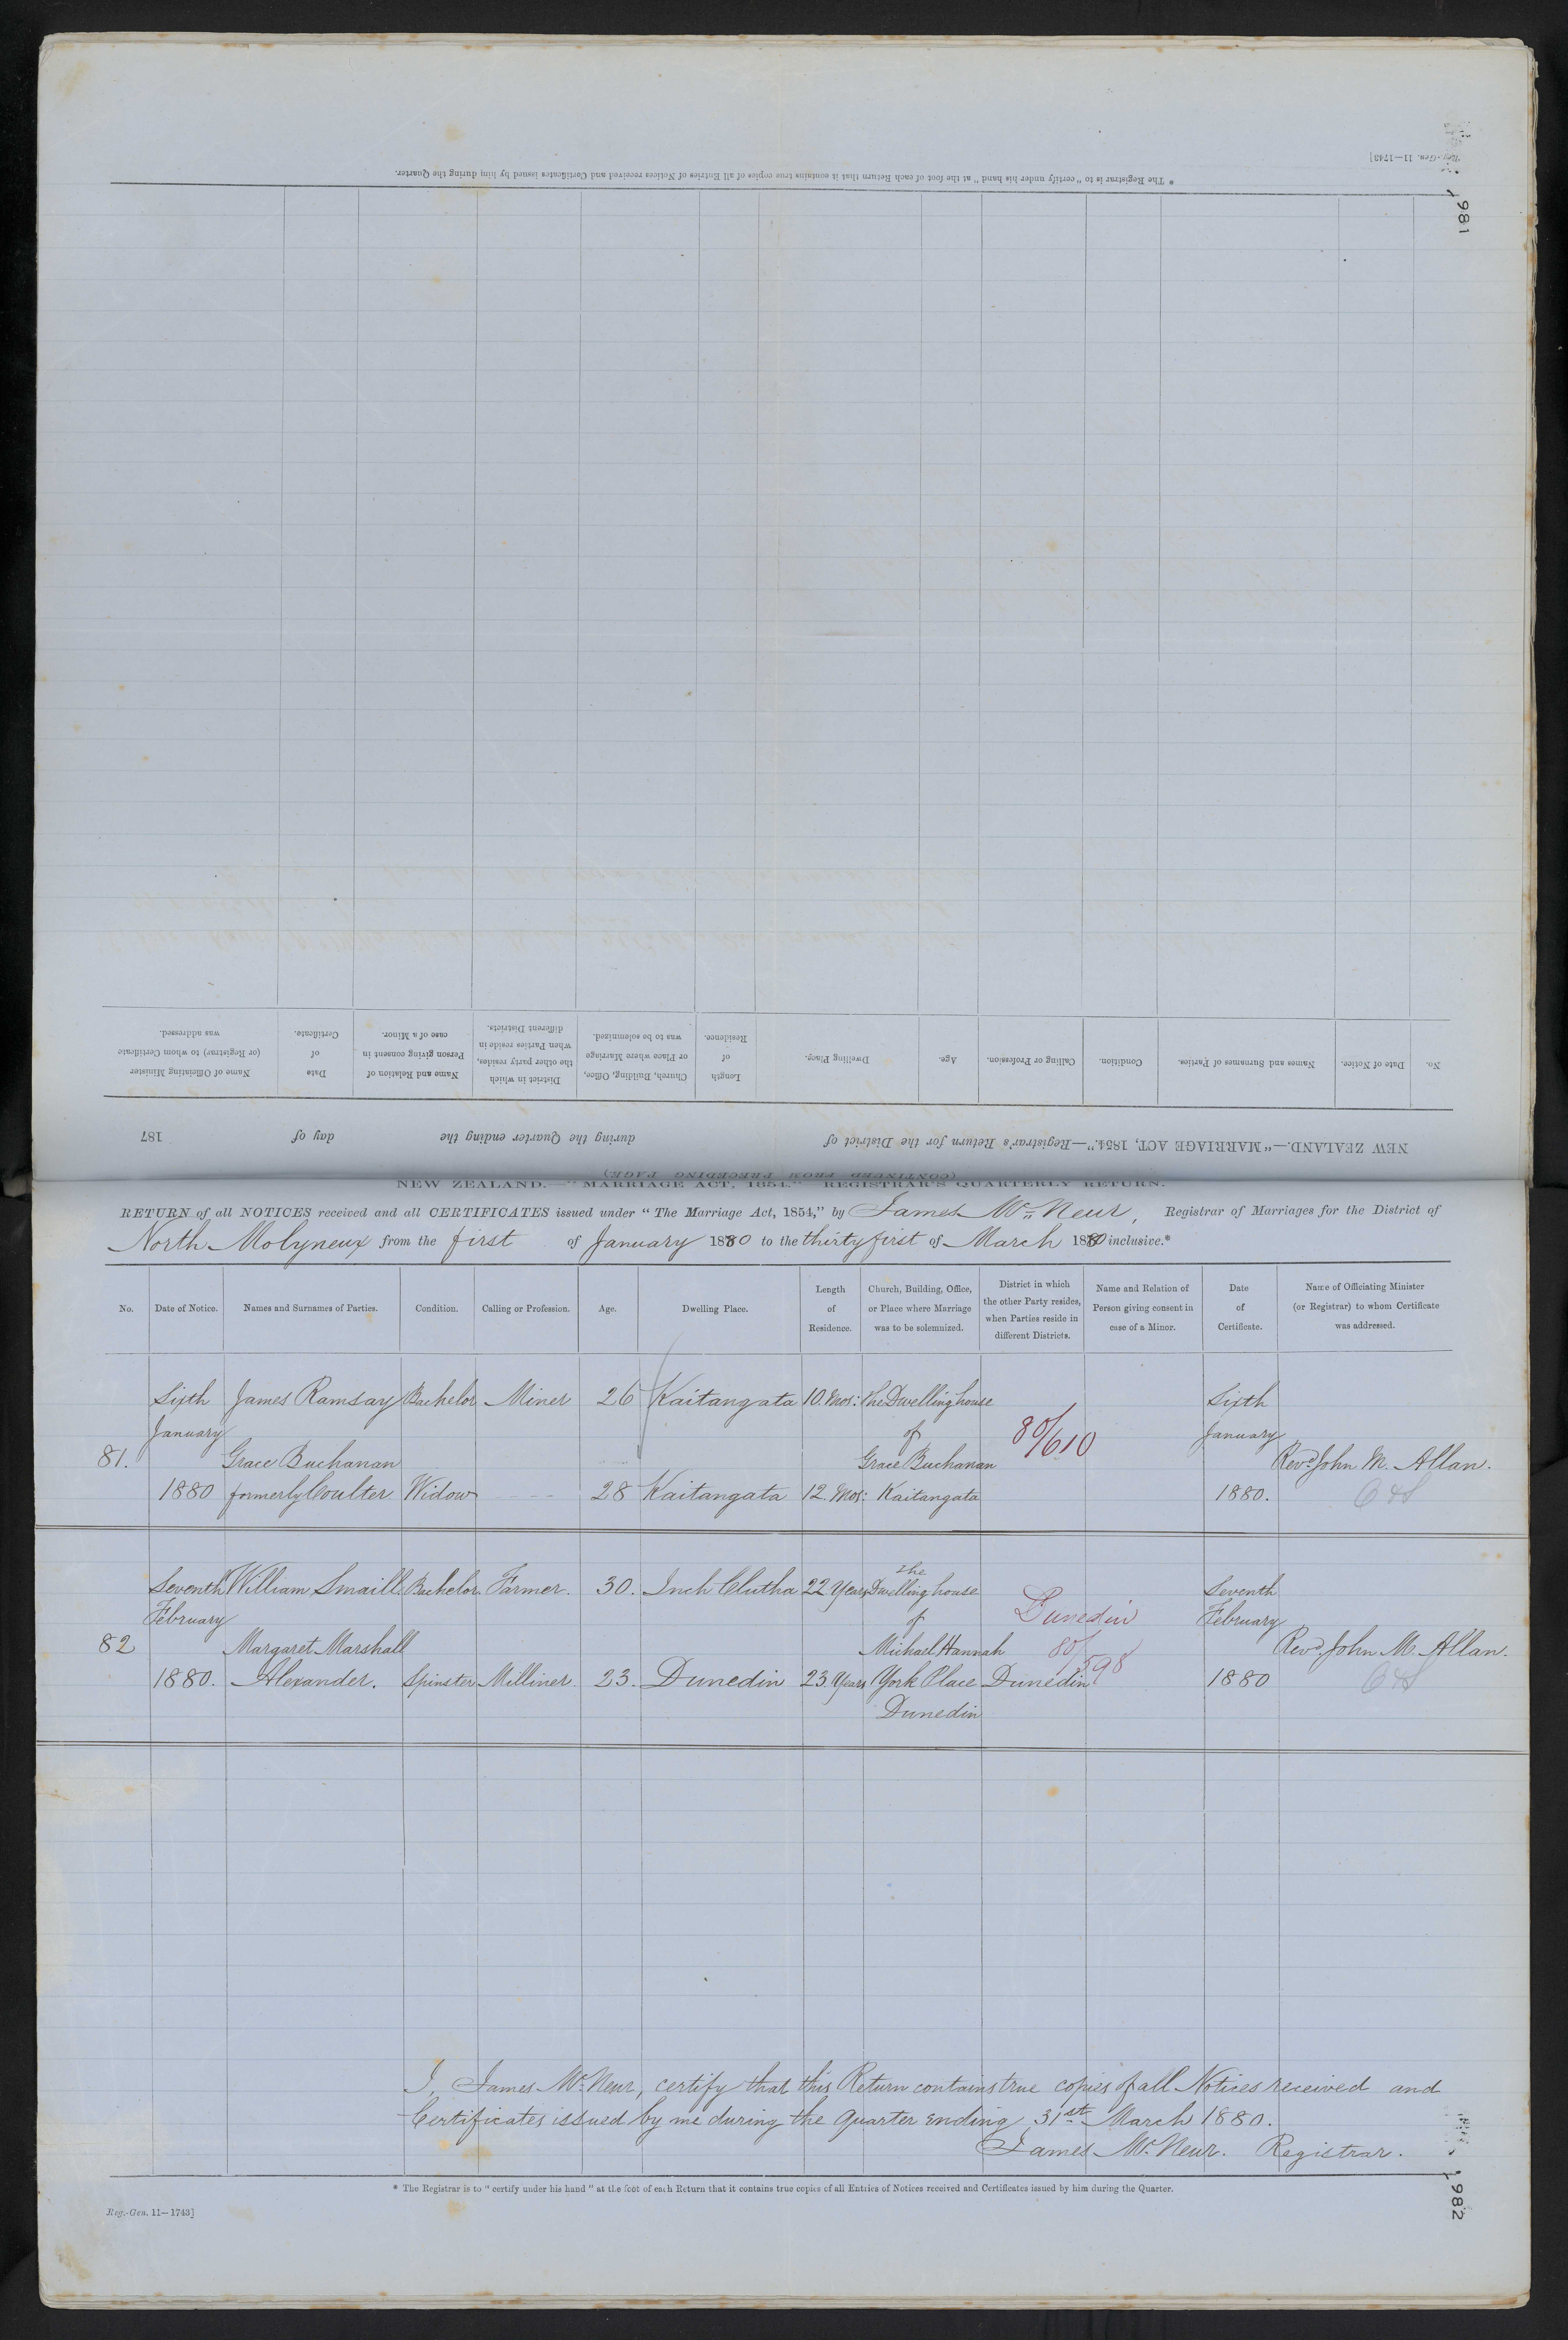 Reg.-Gen. 11—1743]
981
* The Registrar is to "certify under his hand" at the foot of each Return that it contains true copies of all Entries of Notices received and Certificates issued by him during the Quarter.
No.
Date of Notice.
Names and Surnames of Parties.
Condition.
Calling or Profession.
Age.
Dwelling Place.
Length
of
Residence.
Church, Building, Office,
or Place where Marriage
was to be solemnized.
District in which
the other party resides,
when Parties reside in
different Districts.
Name and Relation of
Person giving consent in
case of a Minor.
Date
of
Certificate.
Name of Officiating Minister
(or Registrar) to whom Certificate
was addressed.
NEW ZEALAND.—"MARRIAGE ACT, 1854."—Registrar's Return for the District of during the Quarter ending the day of 187
(CONTINUED FROM PRECEDING PAGE)
NEW ZEALAND.—"MARRIAGE ACT, 1854."—REGISTRAR'S QUARTERLY RETURN.
RETURN of all NOTICES received and all CERTIFICATES issued under "The Marriage Act, 1854," by James McNeur, Registrar of Marriages for the District of
North Molyneux from the first of January 1880 to the thirty first of March 1880 inclusive.*
No.
Date of Notice.
Names and Surnames of Parties.
Condition.
Calling or Profession.
Age.
Dwelling Place.
Length
of
Residence.
Church, Building, Office,
or Place where Marriage
was to be solemnized.
District in which
the other Party resides,
when Parties reside in
different Districts.
Name and Relation of
Person giving consent in
case of a Minor.
Date
of
Certificate.
Name of Officiating Minister
(or Registrar) to whom Certificate
was addressed.
Sixth James Ramsay Bachelor Miner 26 Kaitangata 10. Mos: The Dwelling house Sixth
January of 80/610 January
81. Grace Buchanan Grace Buchanan Revd. John M. Allan.
1880 formerly Coulter Widow 28 Kaitangata 12. Mos: Kaitangata 1880.
The
Seventh William Smaill Bachelor Farmer. 30. Inch Clutha 22 Years Dwelling house Seventh
February of Dunedin February
82 Margaret Marshall Michael Hannah 80/598 Revd. John M. Allan.
1880. Alexander. Spinster Milliner. 23. Dunedin 23 Years York Place Dunedin 1880
Dunedin
I, James McNeur, certify that this Return contains true copies of all Notices received and
Certificates issued by me during the Quarter ending 31st March 1880.
James McNeur. Registrar.
* The Registrar is to "certify under his hand" at the foot of each Return that it contains true copies of all Entries of Notices received and Certificates issued by him during the Quarter.
Reg.-Gen. 11—1743]
982